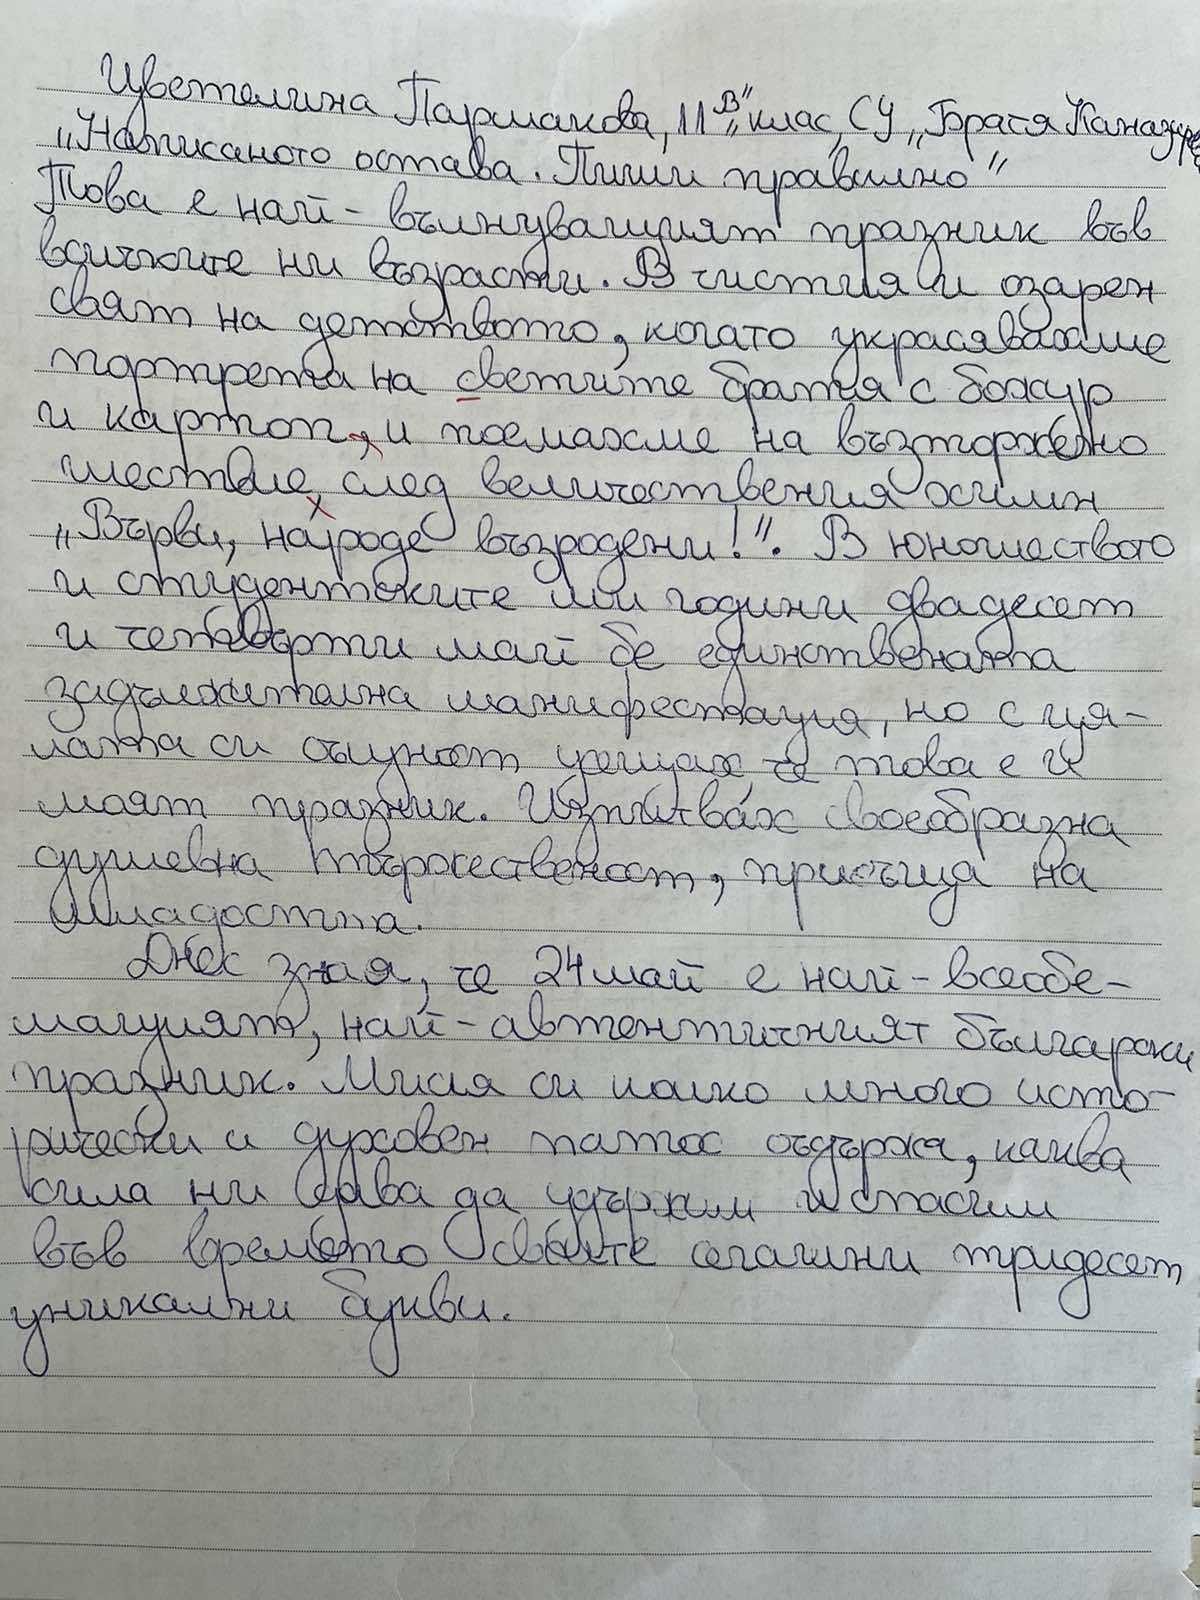 Цветелина Пармакова, 11 „В“ клас, СУ „Братя Каназиреви
„Написаното остава. Пиши правилно“
Това е най-вълнуващият празник във
всичките ни възрасти. В чистия и озарен
свят на детството, когато украсявахме
портрета на светите братя с божур
и картоп, и поемахме на възторжено
шествие, след величествения химн
„Върви, народе възродени!“. В юношеството
и студентските ми години двадесет
и четвърти май бе единствената
задължителна манифестация, но с ця-
лата си същност усещах, че това е и
моят празник. Изпитвах своеобразна
душевна тържественост, присъща на
младостта.
Днес зная, че 24 май е най-всеобе-
мащият, най-автентичният български
празник. Мисля си колко много исто-
рически и духовен патос съдържа, каква
сила ни дава да удържим и спасим
във времето своите сегашни тридесет
уникални букви.